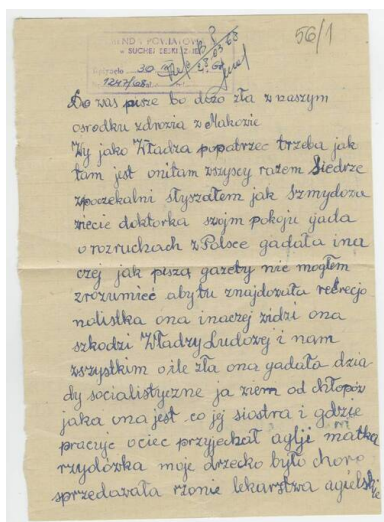 56/1
POWIATOW
30
1247/68
28.03.68
Do was pisze bo dużo zła w waszym
osrodku zdrozia w Makowie
Wy jako Władza popatrzec trzeba jak
tam jest oni tam wszyscy razem Siedze
w poczekalni słyszałem jak Szmydowa
wiecie doktorka swojm pokoju gada
o rozruchach w Polsce gadała ina
czej jak piszą gazety nie mogłem
zrozumieć
ona inaczej widzi ona
szkodzi Władzy Ludowej i nam
wszystkim o ile zła ona gadała dzia
dy socialistyczne ja wiem od chłopów
jaka ona jest co jej siostra i gdzie
pracuje ociec przyjechał aglji matka
rzydówka moje dzecko było choro
sprzedawała rzonie lekarstwa agielskie